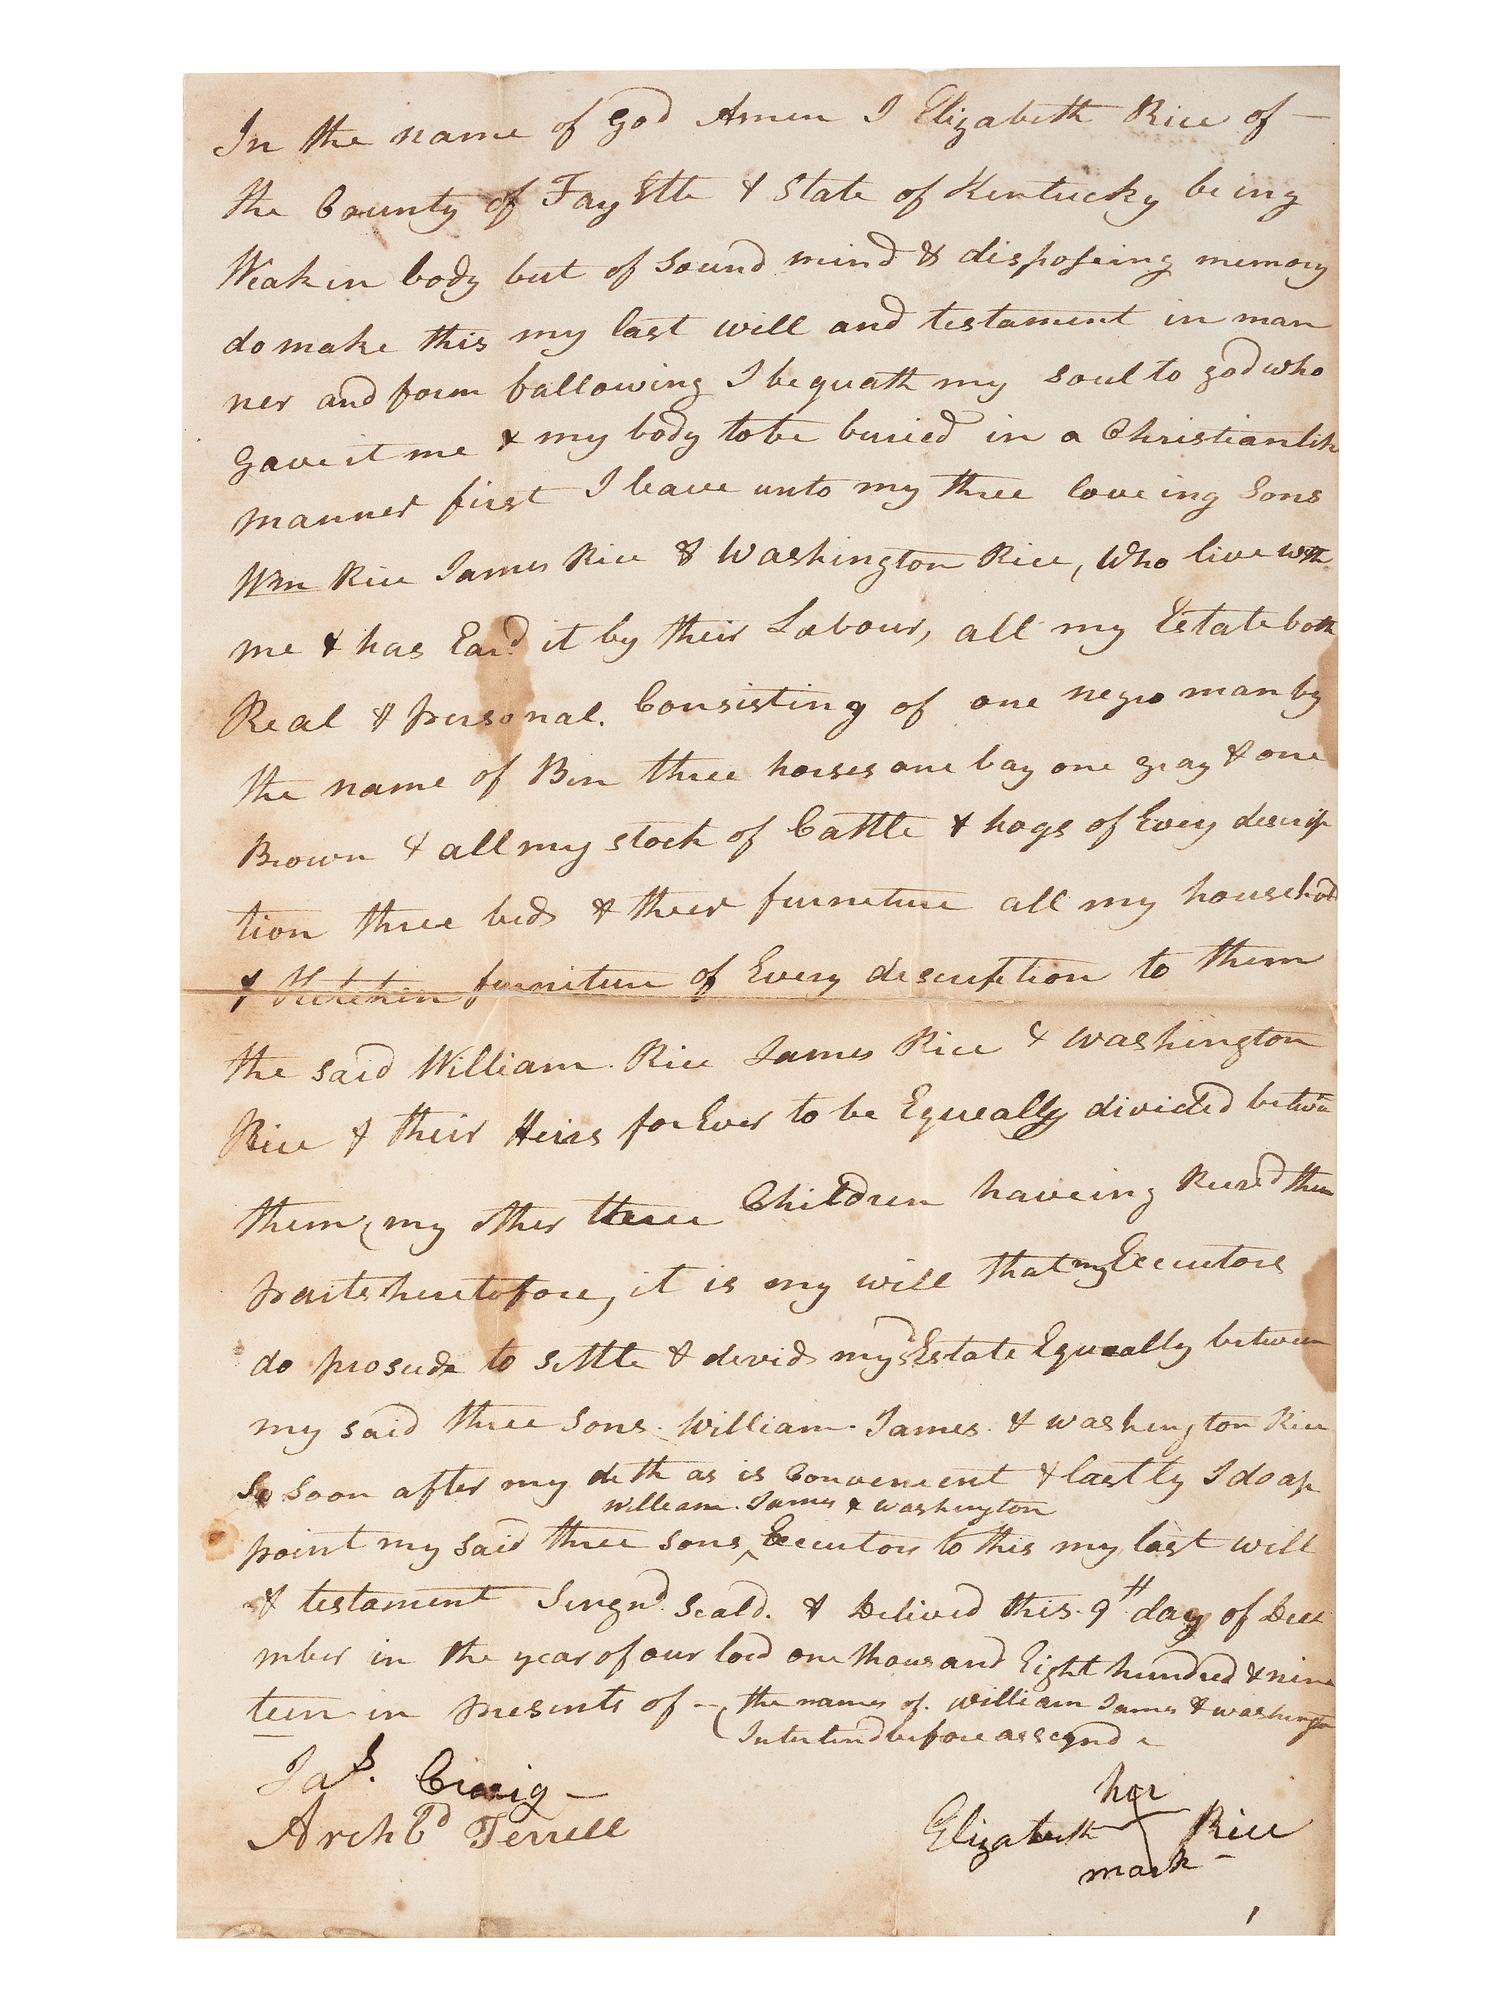 In the name of God Amen I Elizabeth Rice of —
the County of Fayette & State of Kentucky being
Weak in body but of Sound mind & disposeing memory
do make this my last will and testament in man
ner and form fallowing I bequath my soul to god who
Gave it me & my body to be buried in a Christianlik
manner first I leave unto my three loveing Sons
Wm Rice James Rice & Washington Rice, Who live with
me & has Ear'd it by their Labour, all my Estate both
Real & personal. Consisting of one negro man by
the name of Ben three horses one bay one gray & one
Brown & all my stock of Cattle & hogs of Every descrip
tion three beds & their furneture all my household
& Kitchin furniture of Every descriftion to them
the said William Rice James Rice & Washington
Rice & their Heirs for Ever to be Equeally divided betwen
them, my other three Children haveing Recvd them
parts heretofore, it is my will that my Executors
do prosude to settle & devid my sd Estate Equeally between
my said three Sons. William. James. & Washington Rice
So Soon after my deth as is Convenient & lastly I do ap
william. James & Washington
point my said three sons ^ Executors to this my last will
& testament Singnd. Seald. & Delived this 9th day of Dece
mber in the year of our lord one thousand Eight hundred & nine
teen in presents of — (the names of. William James & Washington
Interlind before assegnd —
Jas. Craig —
Archbd Terrell
her
Elizabeth Rice
mark —